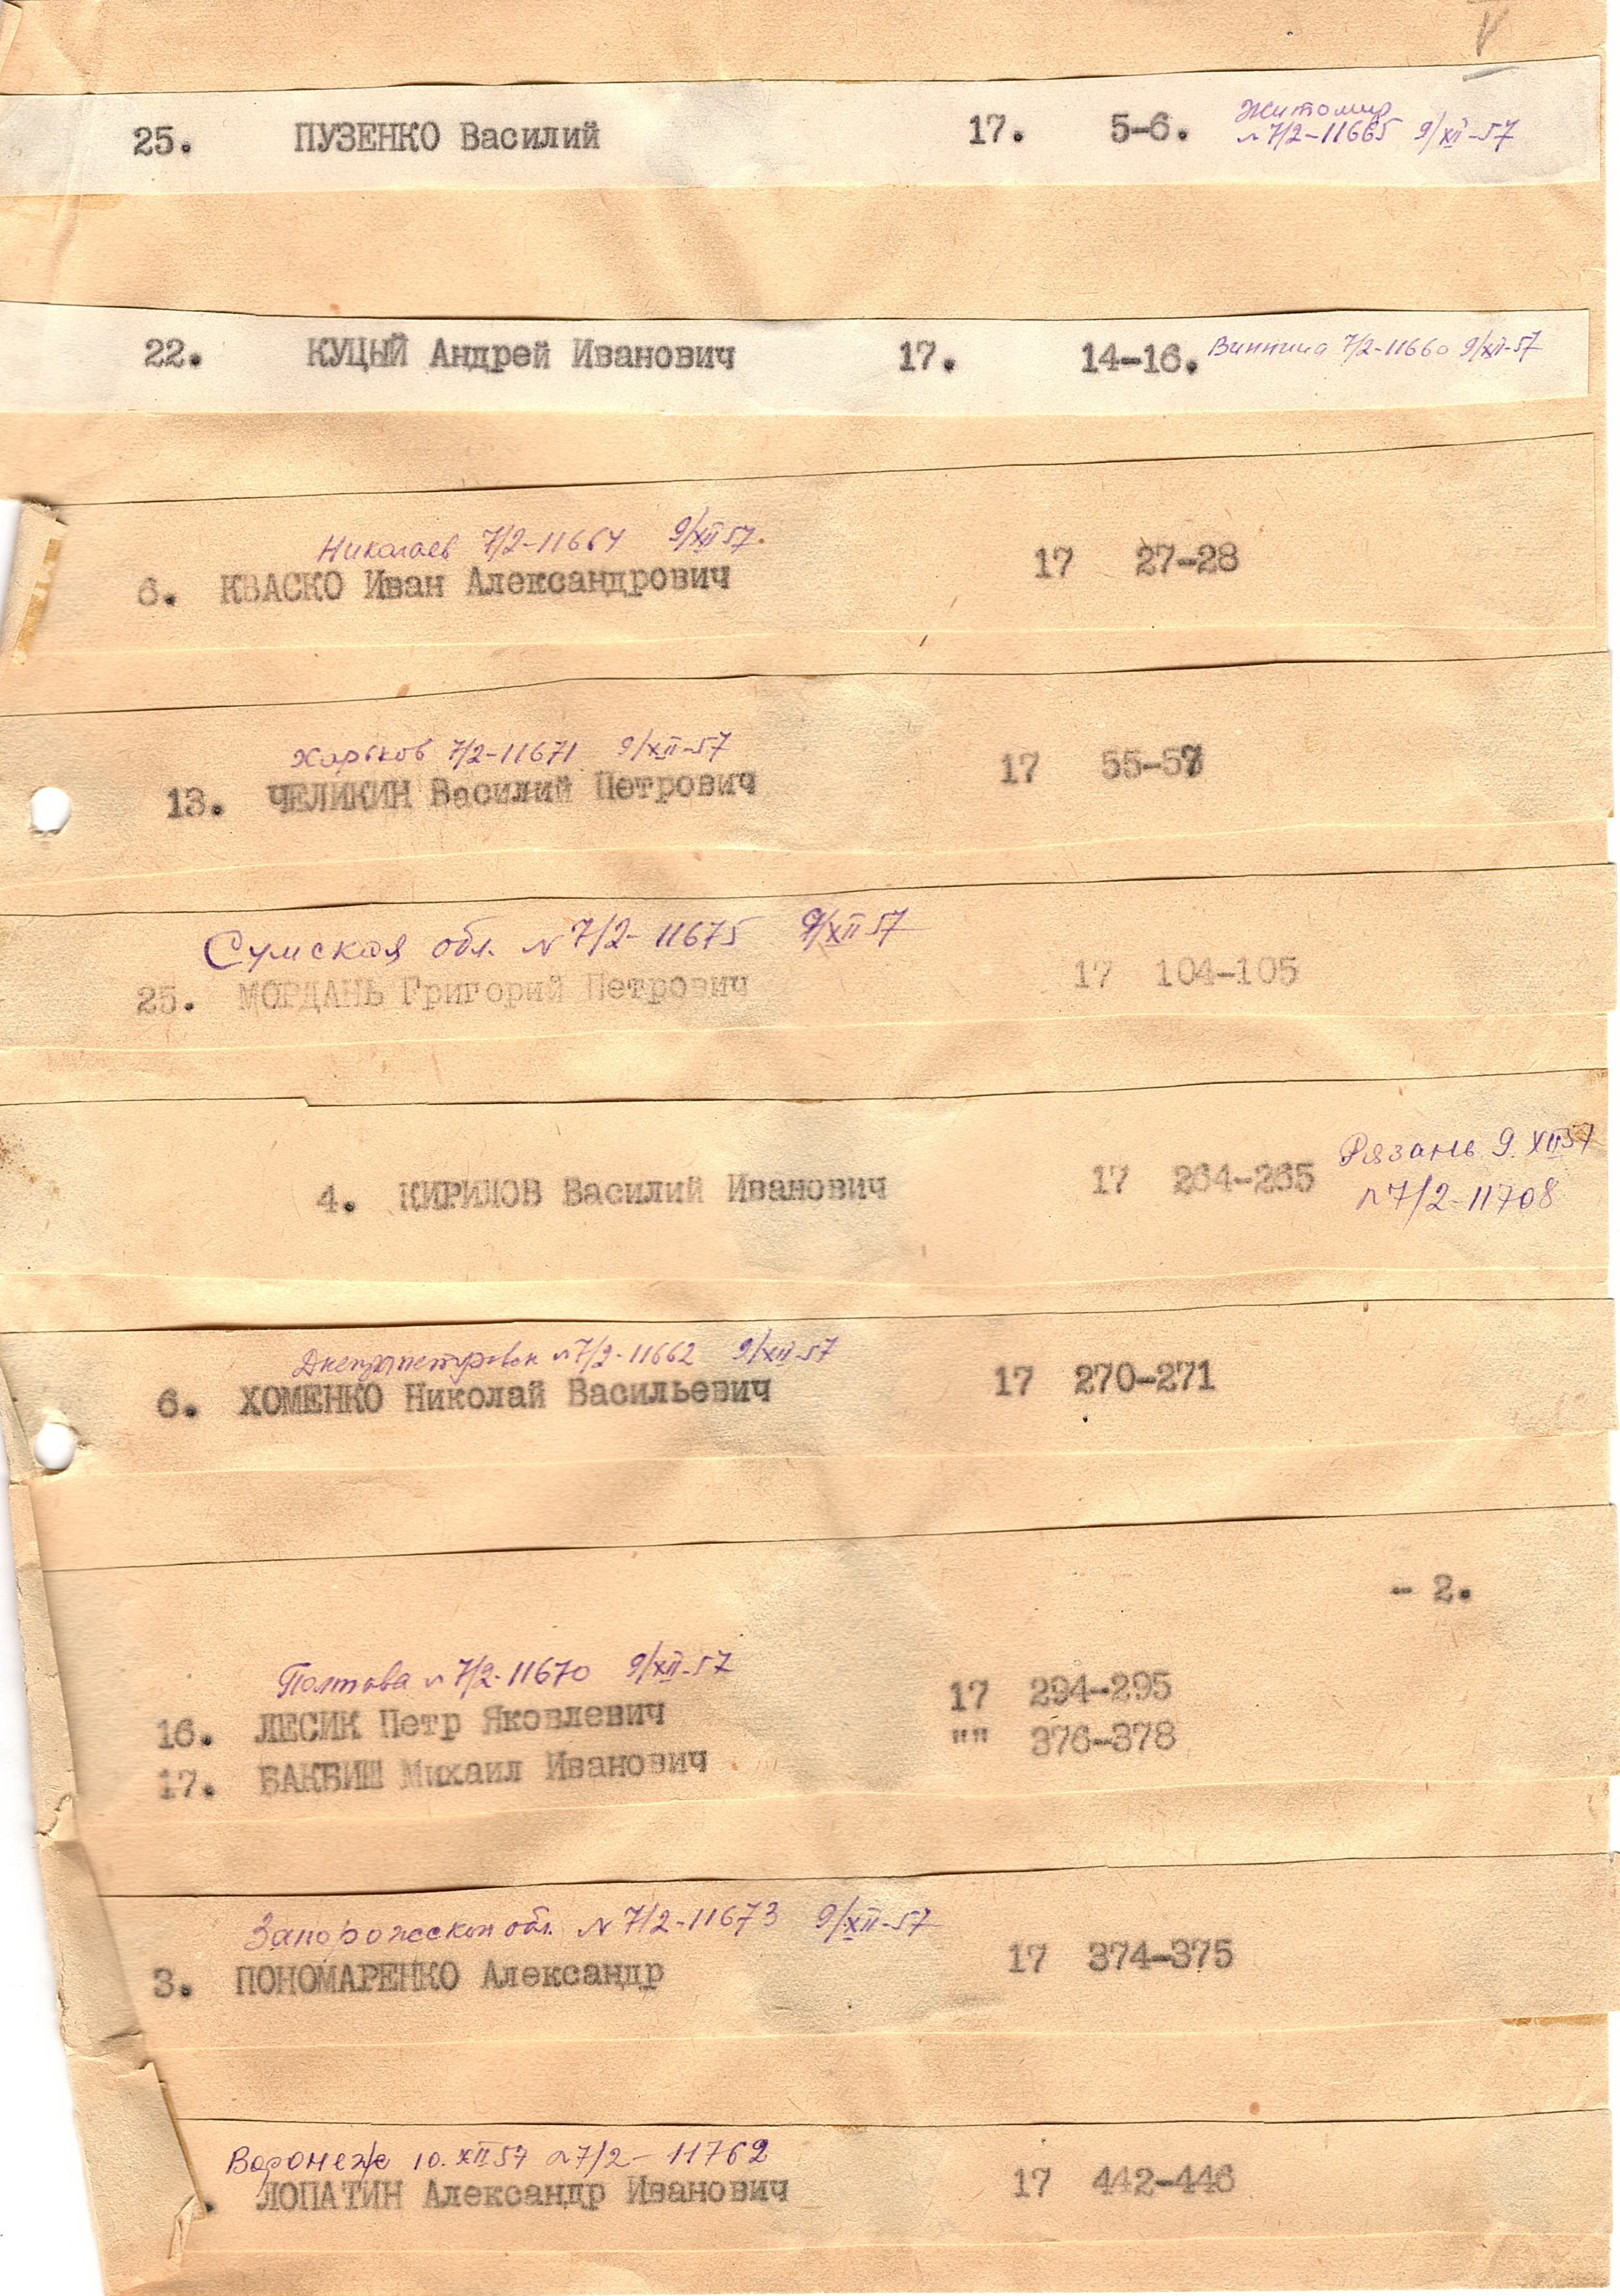 V
Житомир
25. ПУЗЕНКО Василий 17. 5-6. N 7/2-11665 9/XII-57
22. КУЦЫЙ Андрей Иванович 17. 14-16. Винница 7/2-11660 9/XII-57
Николаев 7/2-11664 9/XII 57.
6. КВАСКО Иван Александрович 17 27-28
Харьков 7/2-11671 9/XII-57
13. ЧЕЛИКИН Василий Петрович 17 55-57
Сумская обл. N 7/2-11675 9/XII 57
25. МОРДАНЬ Григорий Петрович 17 104-105
Рязань 9.XII 57
4. КИРИЛОВ Василий Иванович 17 264-265
N 7/2-11708
Днепропетровск N 7/2-11662 9/XII-57
6. ХОМЕНКО Николай Васильевич 17 270-271
- 2.
Полтава N 7/2-11670 9/XII-57
16. ЛЕСИК Петр Яковлевич 17 294-295
17. БАКБИШ Михаил Иванович "" 376-378
Запорожская обл. N 7/2-11673 9/XII-57
3. ПОНОМАРЕНКО Александр 17 374-375
Воронеж 10.XII 57 N 7/2-11762
. ЛОПАТИН Александр Иванович 17 442-446